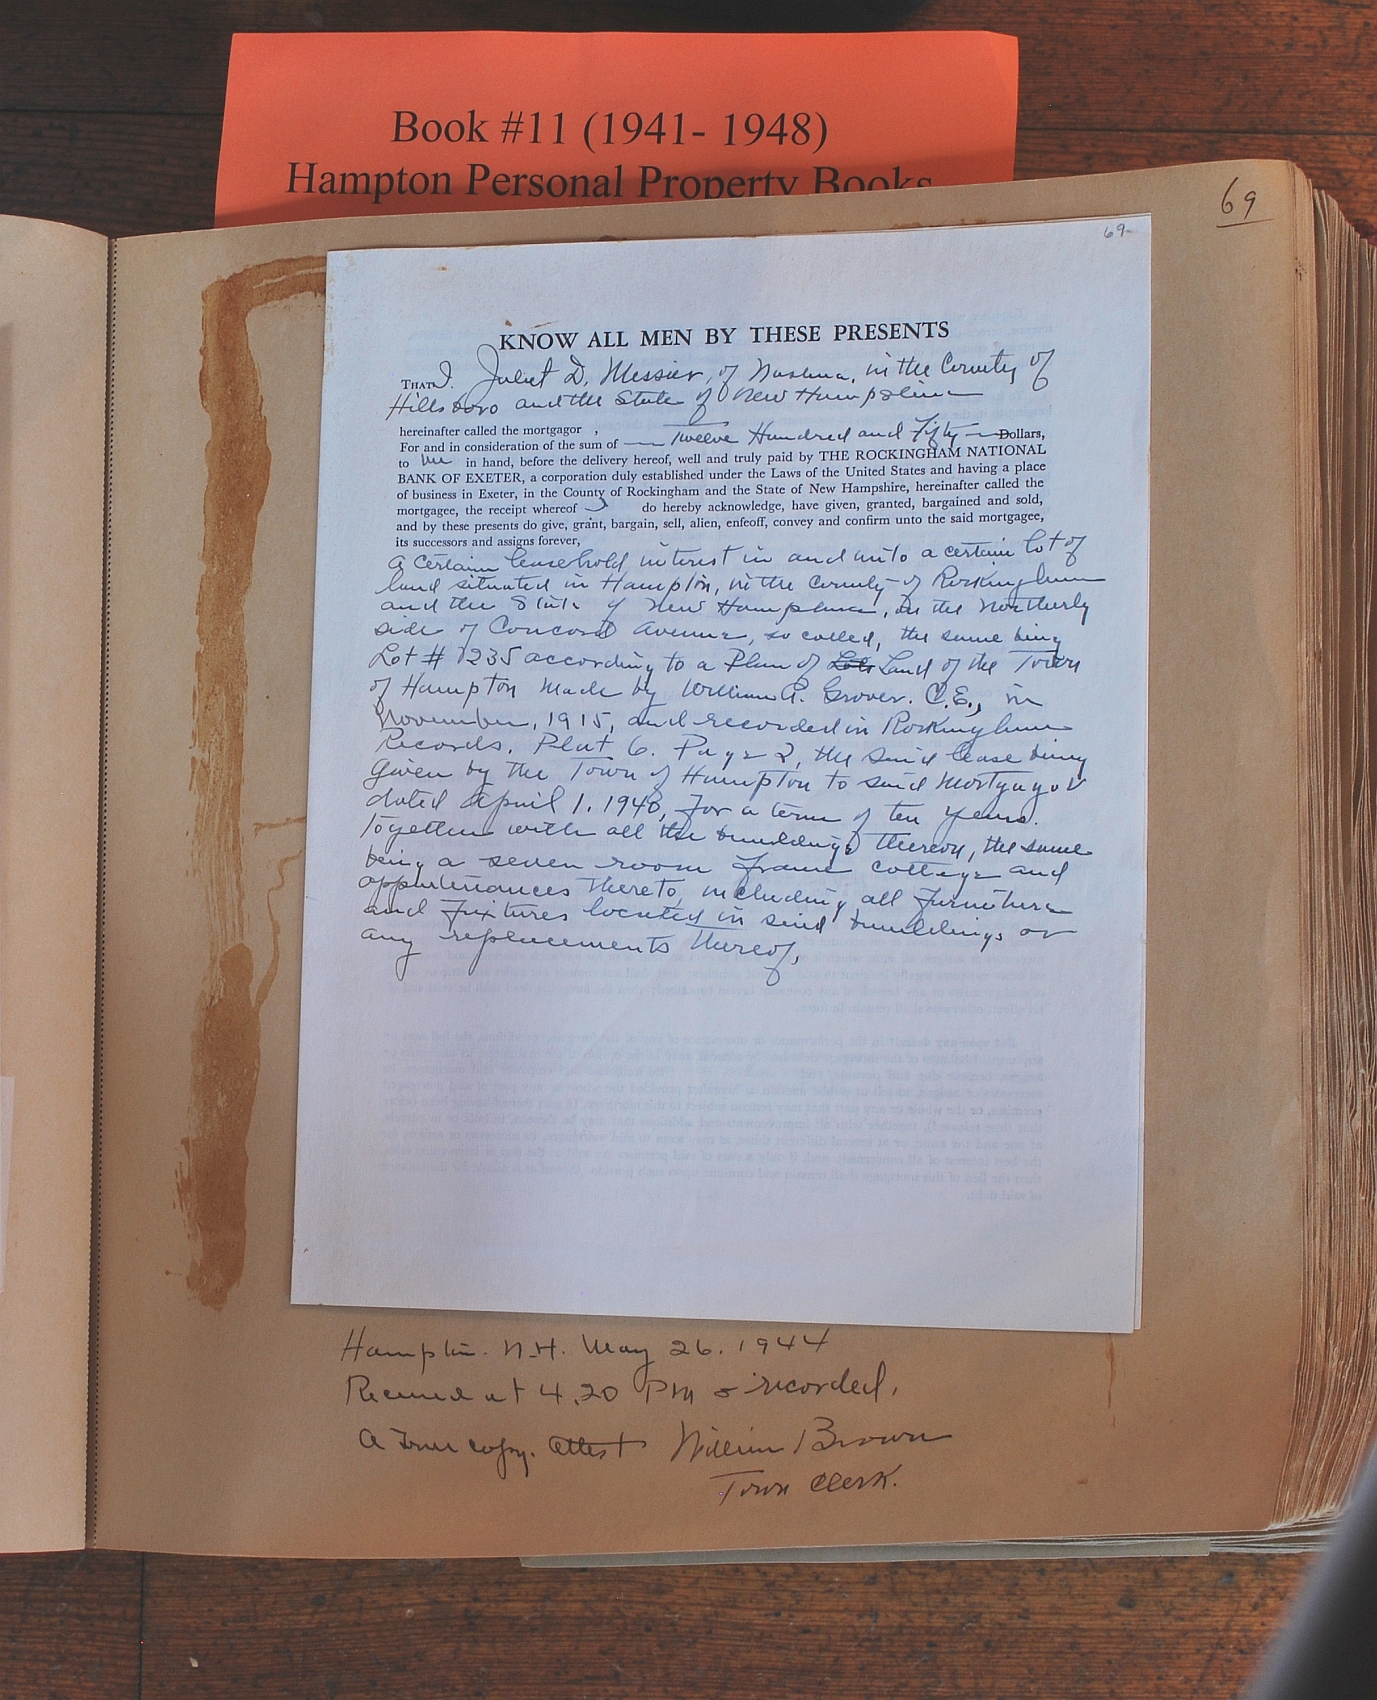 Book #11 (1941- 1948)
Hampton Personal Property Books
69
69
KNOW ALL MEN BY THESE PRESENTS
THAT I, Juliet D. Messier, of Nashua, in the County of
Hillsboro and the State of New Hampshire
hereinafter called the mortgagor ,
For and in consideration of the sum of — Twelve Hundred and Fifty — Dollars,
to me in hand, before the delivery hereof, well and truly paid by THE ROCKINGHAM NATIONAL
BANK OF EXETER, a corporation duly established under the Laws of the United States and having a place
of business in Exeter, in the County of Rockingham and the State of New Hampshire, hereinafter called the
mortgagee, the receipt whereof I do hereby acknowledge, have given, granted, bargained and sold,
and by these presents do give, grant, bargain, sell, alien, enfeoff, convey and confirm unto the said mortgagee,
its successors and assigns forever,
A certain leasehold interest in and unto a certain lot of
land situated in Hampton, in the County of Rockingham
and the State of New Hampshire, on the Northerly
side of Concord Avenue, so called, the same being
Lot # 1235 according to a Plan of Lots Land of the Town
of Hampton made by William A. Grover. C.E., in
November, 1915, and recorded in Rockingham
Records. Plat 6. Page 2, the said lease being
given by the Town of Hampton to said Mortgagor
dated April 1. 1940, for a term of ten years.
Together with all the buildings thereon, the same
being a seven room frame cottage and
appurtenances thereto, including all furniture
and fixtures located in said buildings or
any replacements thereof,
Hampton. N.H. May 26. 1944
Received at 4.20 PM & recorded,
A True copy. Attest William Brown
Town Clerk.